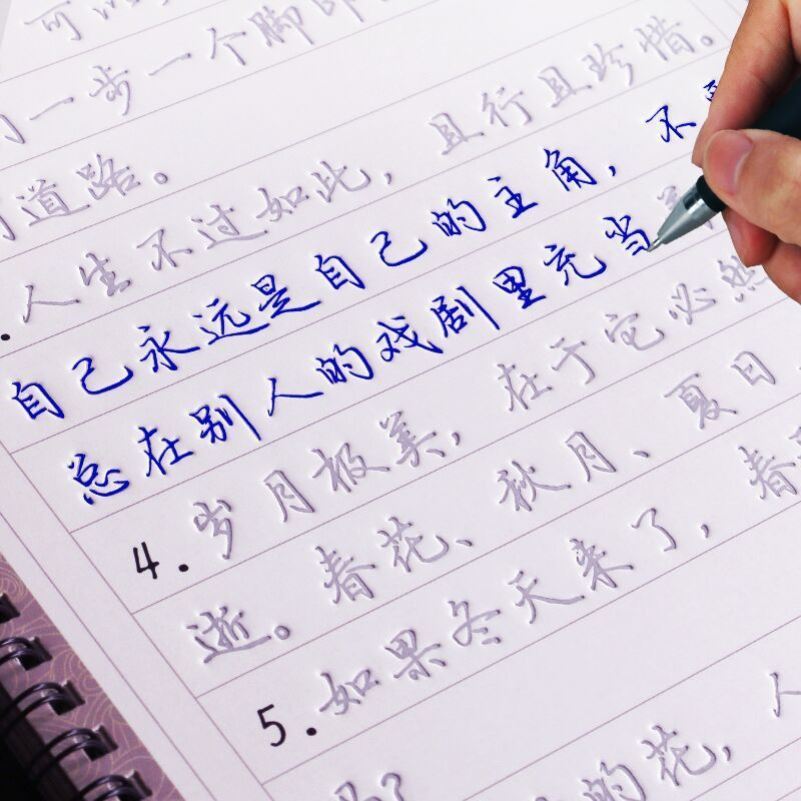 可以
一步一个脚印
道路。
人生不过如此，且行且珍惜。
自己永远是自己的主角，不
总在别人的戏剧里充当
4.岁月极美，在于它必然
逝。春花、秋月、夏日
5.如果冬天来了，春
吗？
的花，人